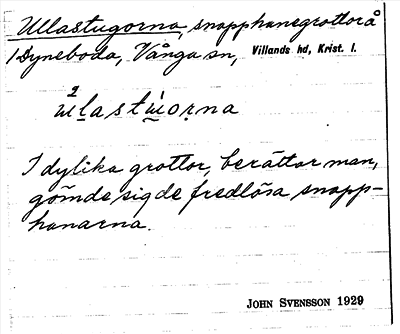 Ullastugorna, snapphanegrottor å
/ Dyneboda, Vånga sn, Villands hd, Krist. l.
2
I dylika grottor, berättar man,
gömde sig de fredlösa snapp-
hanarna.
JOHN SVENSSON 1929